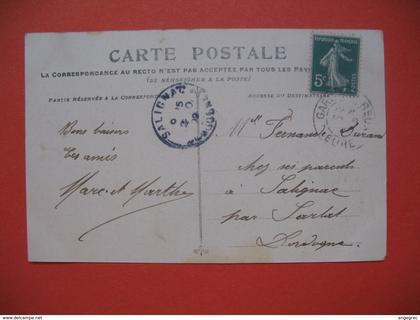 CARTE POSTALE
LA CORRESPONDANCE AU RECTO N'EST PAS ACCEPTÉE PAR TOUS LES PAYS
(SE RENSEIGNER À LA POSTE)
PARTIE RÉSERVÉE À LA CORRESPON
ADRESSE DU DESTINATAIRE
REPUBLIQUE FRANÇAISE
5c
POSTES
SALIGNAC
DORDOGNE
GARE
EURE
Bons baisers
tes amis
Marc et Marthe
Mlle Fernande
chez ses parents
à Salignac
par Sarlat
Dordogne